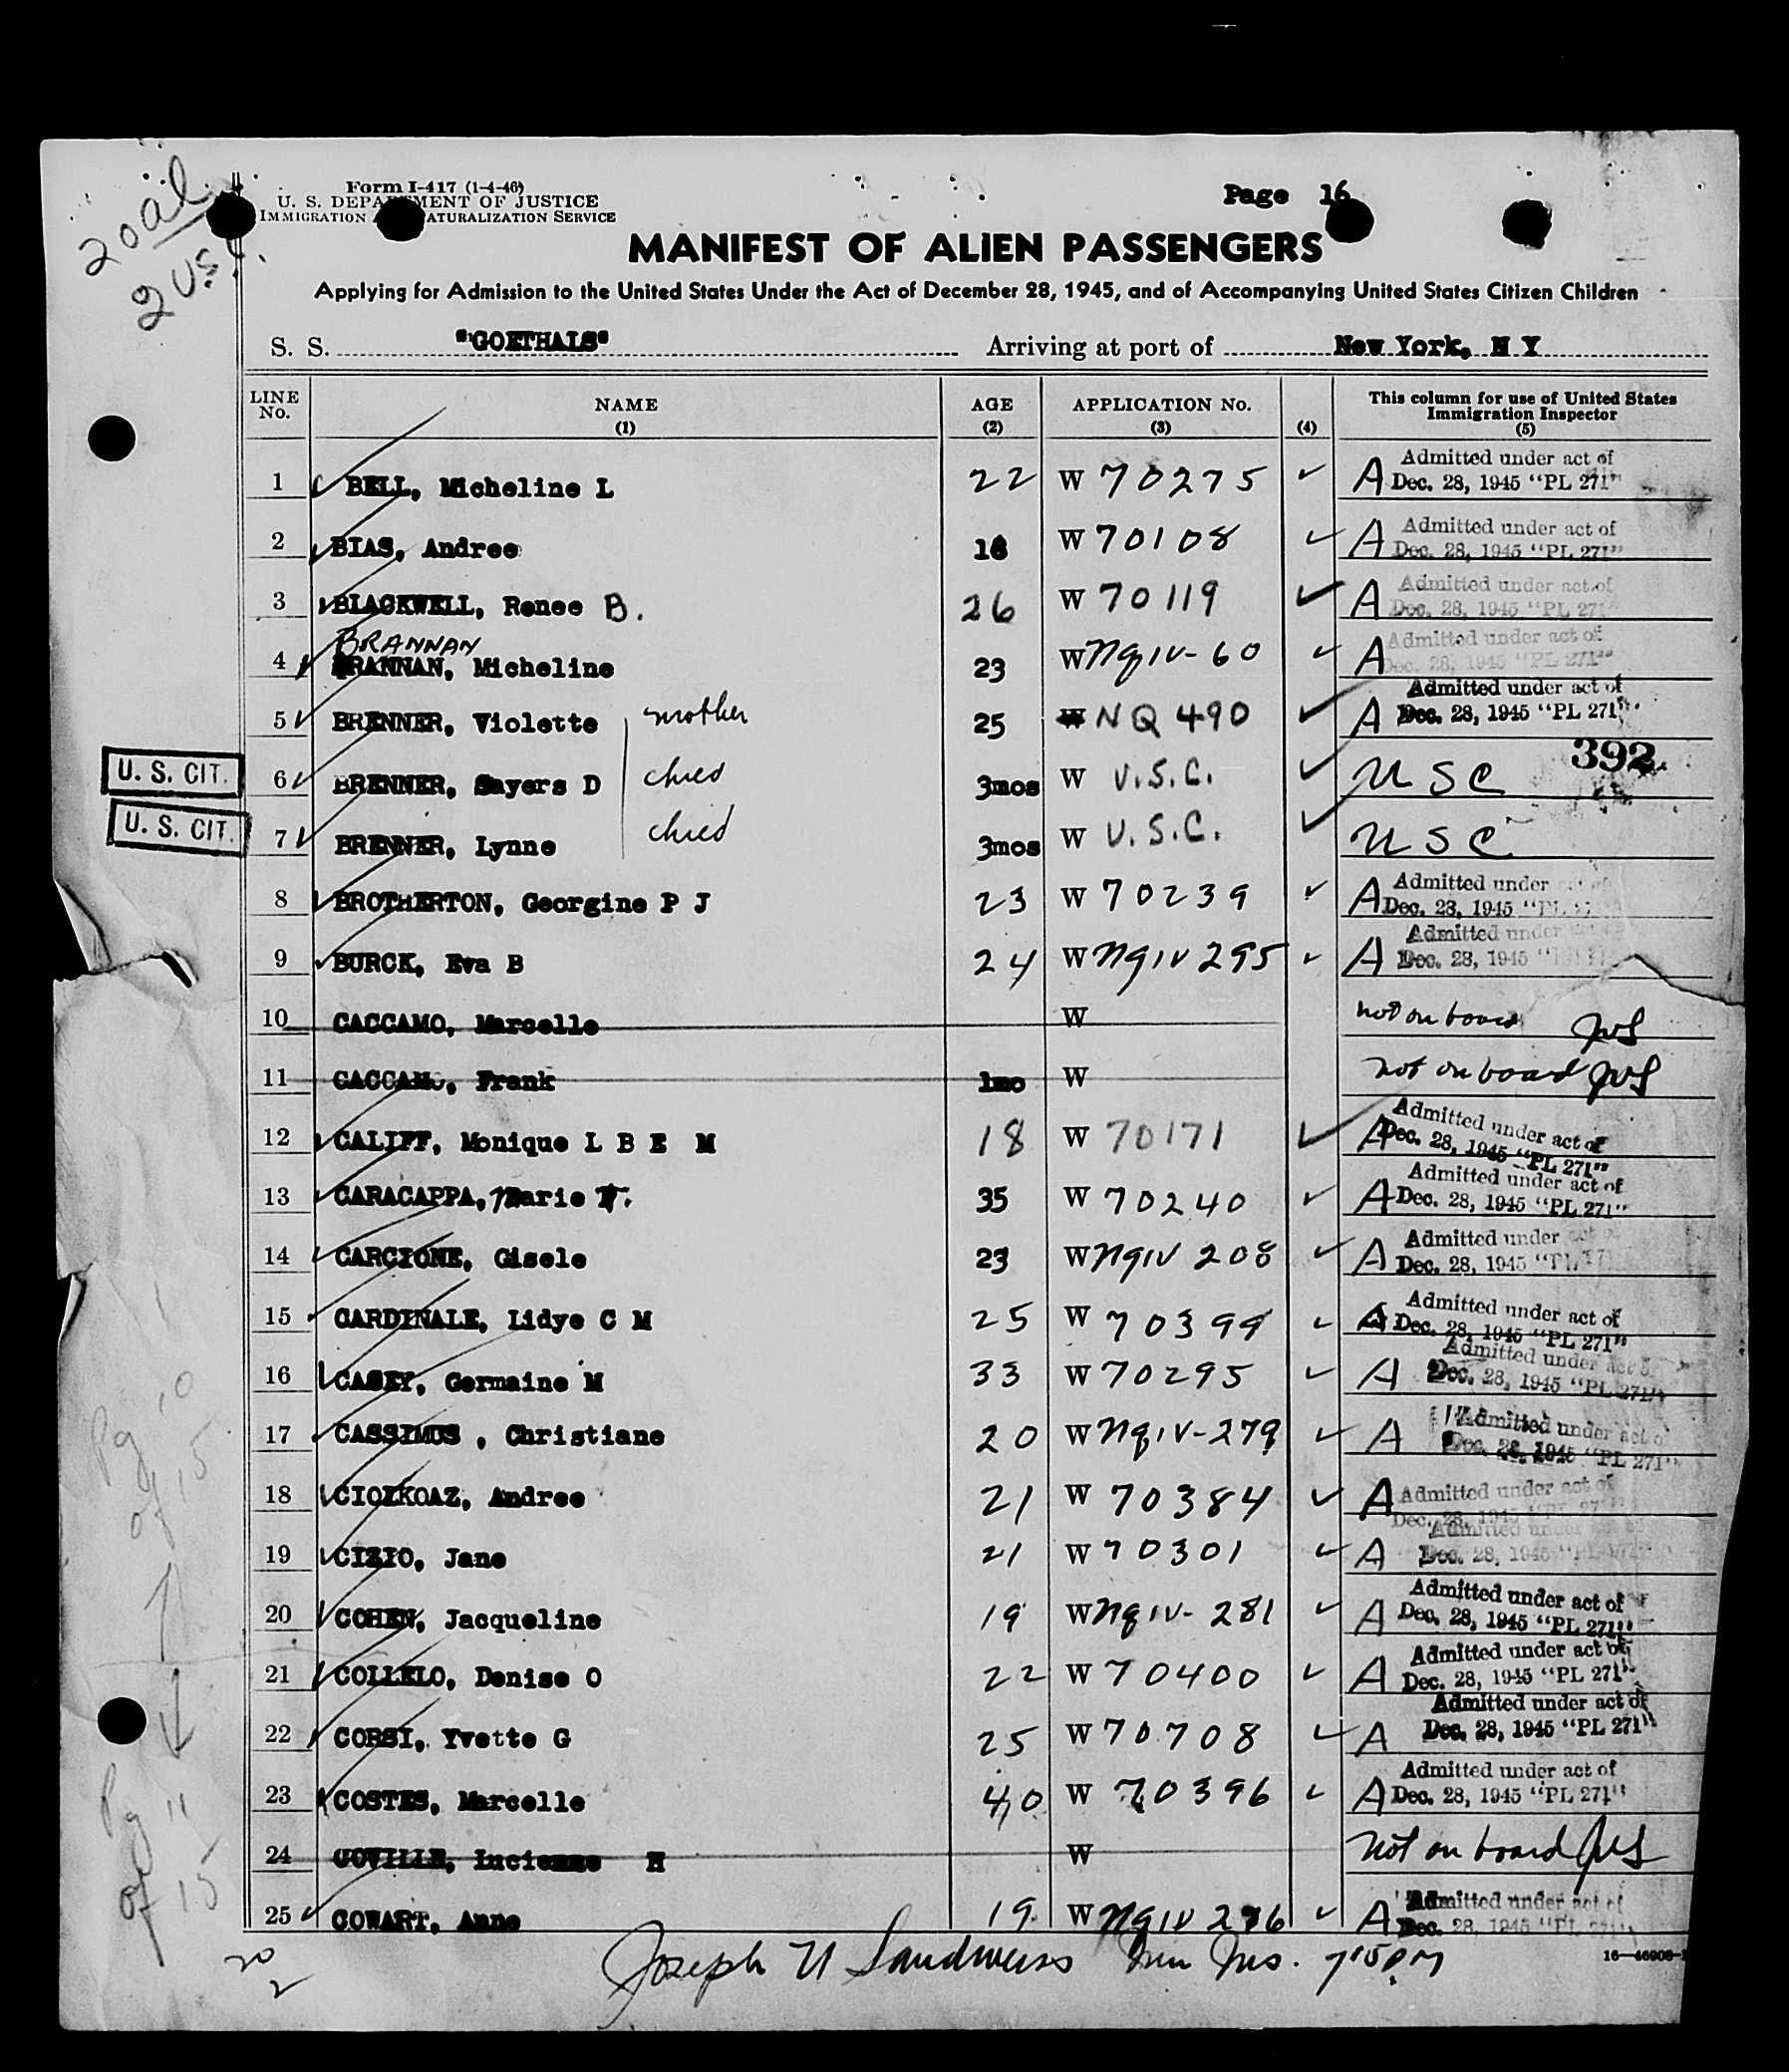 20 al
2 U.S.C.
Form I-417 (1-4-46)
U. S. DEPARTMENT OF JUSTICE
IMMIGRATION AND NATURALIZATION SERVICE
Page 16
MANIFEST OF ALIEN PASSENGERS
Applying for Admission to the United States Under the Act of December 28, 1945, and of Accompanying United States Citizen Children
S. S. "GOETHALS" Arriving at port of New York, N Y
LINE No. NAME (1) AGE (2) APPLICATION No. (3) (4) This column for use of United States Immigration Inspector (5)
1 BELL, Micheline L 22 W 70275 ✓ A Admitted under act of Dec. 28, 1945 "PL 271"
2 BIAS, Andree 18 W 70108 ✓ A Admitted under act of Dec. 28, 1945 "PL 271"
3 BLACKWELL, Renee B. 26 W 70119 ✓ A Admitted under act of Dec. 28, 1945 "PL 271"
BRANNAN
4 BRANNAN, Micheline 23 W NQIV-60 ✓ A Admitted under act of Dec. 28, 1945 "PL 271"
5 BRENNER, Violette mother 25 W NQ 490 ✓ A Admitted under act of Dec. 28, 1945 "PL 271"
392
U. S. CIT. 6 BRENNER, Sayers D child 3mos W U.S.C. ✓ USC
U. S. CIT. 7 BRENNER, Lynne child 3mos W U.S.C. ✓ USC
8 BROTHERTON, Georgine P J 23 W 70239 ✓ A Admitted under act of Dec. 28, 1945 "PL 271"
9 BURCK, Eva B 24 W NQIV 295 ✓ A Admitted under Dec. 28, 1945
10 CACCAMO, Marcelle W not on board JVS
11 CACCAMO, Frank 1mo W not on board JVS
12 CALIFF, Monique L B E M 18 W 70171 ✓ A Admitted under act of Dec. 28, 1945 "PL 271"
13 CARACAPPA, Marie T. 35 W 70240 ✓ A Admitted under act of Dec. 28, 1945 "PL 271"
14 CARCIONE, Gisele 23 W NQIV 208 ✓ A Admitted under Dec. 28, 1945
15 CARDINALE, Lidye C M 25 W 70399 ✓ A Admitted under act of Dec. 28, 1945 "PL 271"
16 CASEY, Germaine M 33 W 70295 ✓ A Admitted under act of Dec. 28, 1945 "PL 271"
17 CASSIMUS , Christiane 20 W NQIV-279 ✓ A Admitted under act of Dec. 28, 1945 "PL 271"
18 CIOLKOAZ, Andree 21 W 70384 ✓ A Admitted under act of Dec. 28, 1945 "PL 271"
19 CIZIO, Jane 21 W 70301 ✓ A Admitted under act of Dec. 28, 1945 "PL 271"
20 COHEN, Jacqueline 19 W NQIV-281 ✓ A Admitted under act of Dec. 28, 1945 "PL 271"
21 COLLELO, Denise O 22 W 70400 ✓ A Admitted under act of Dec. 28, 1945 "PL 271"
22 CORSI, Yvette G 25 W 70708 ✓ A Admitted under act of Dec. 28, 1945 "PL 271"
23 COSTES, Marcelle 40 W 70396 ✓ A Admitted under act of Dec. 28, 1945 "PL 271"
24 COVILLE, Lucienne H W not on board JVS
25 COWART, Anne 19 W NQIV 276 ✓ A Admitted under act of Dec. 28, 1945 "PL 271"
Pg 10
of 15
Pg 11
of 15
20
2
Joseph Sandweiss Imm Ins. 7:15 PM